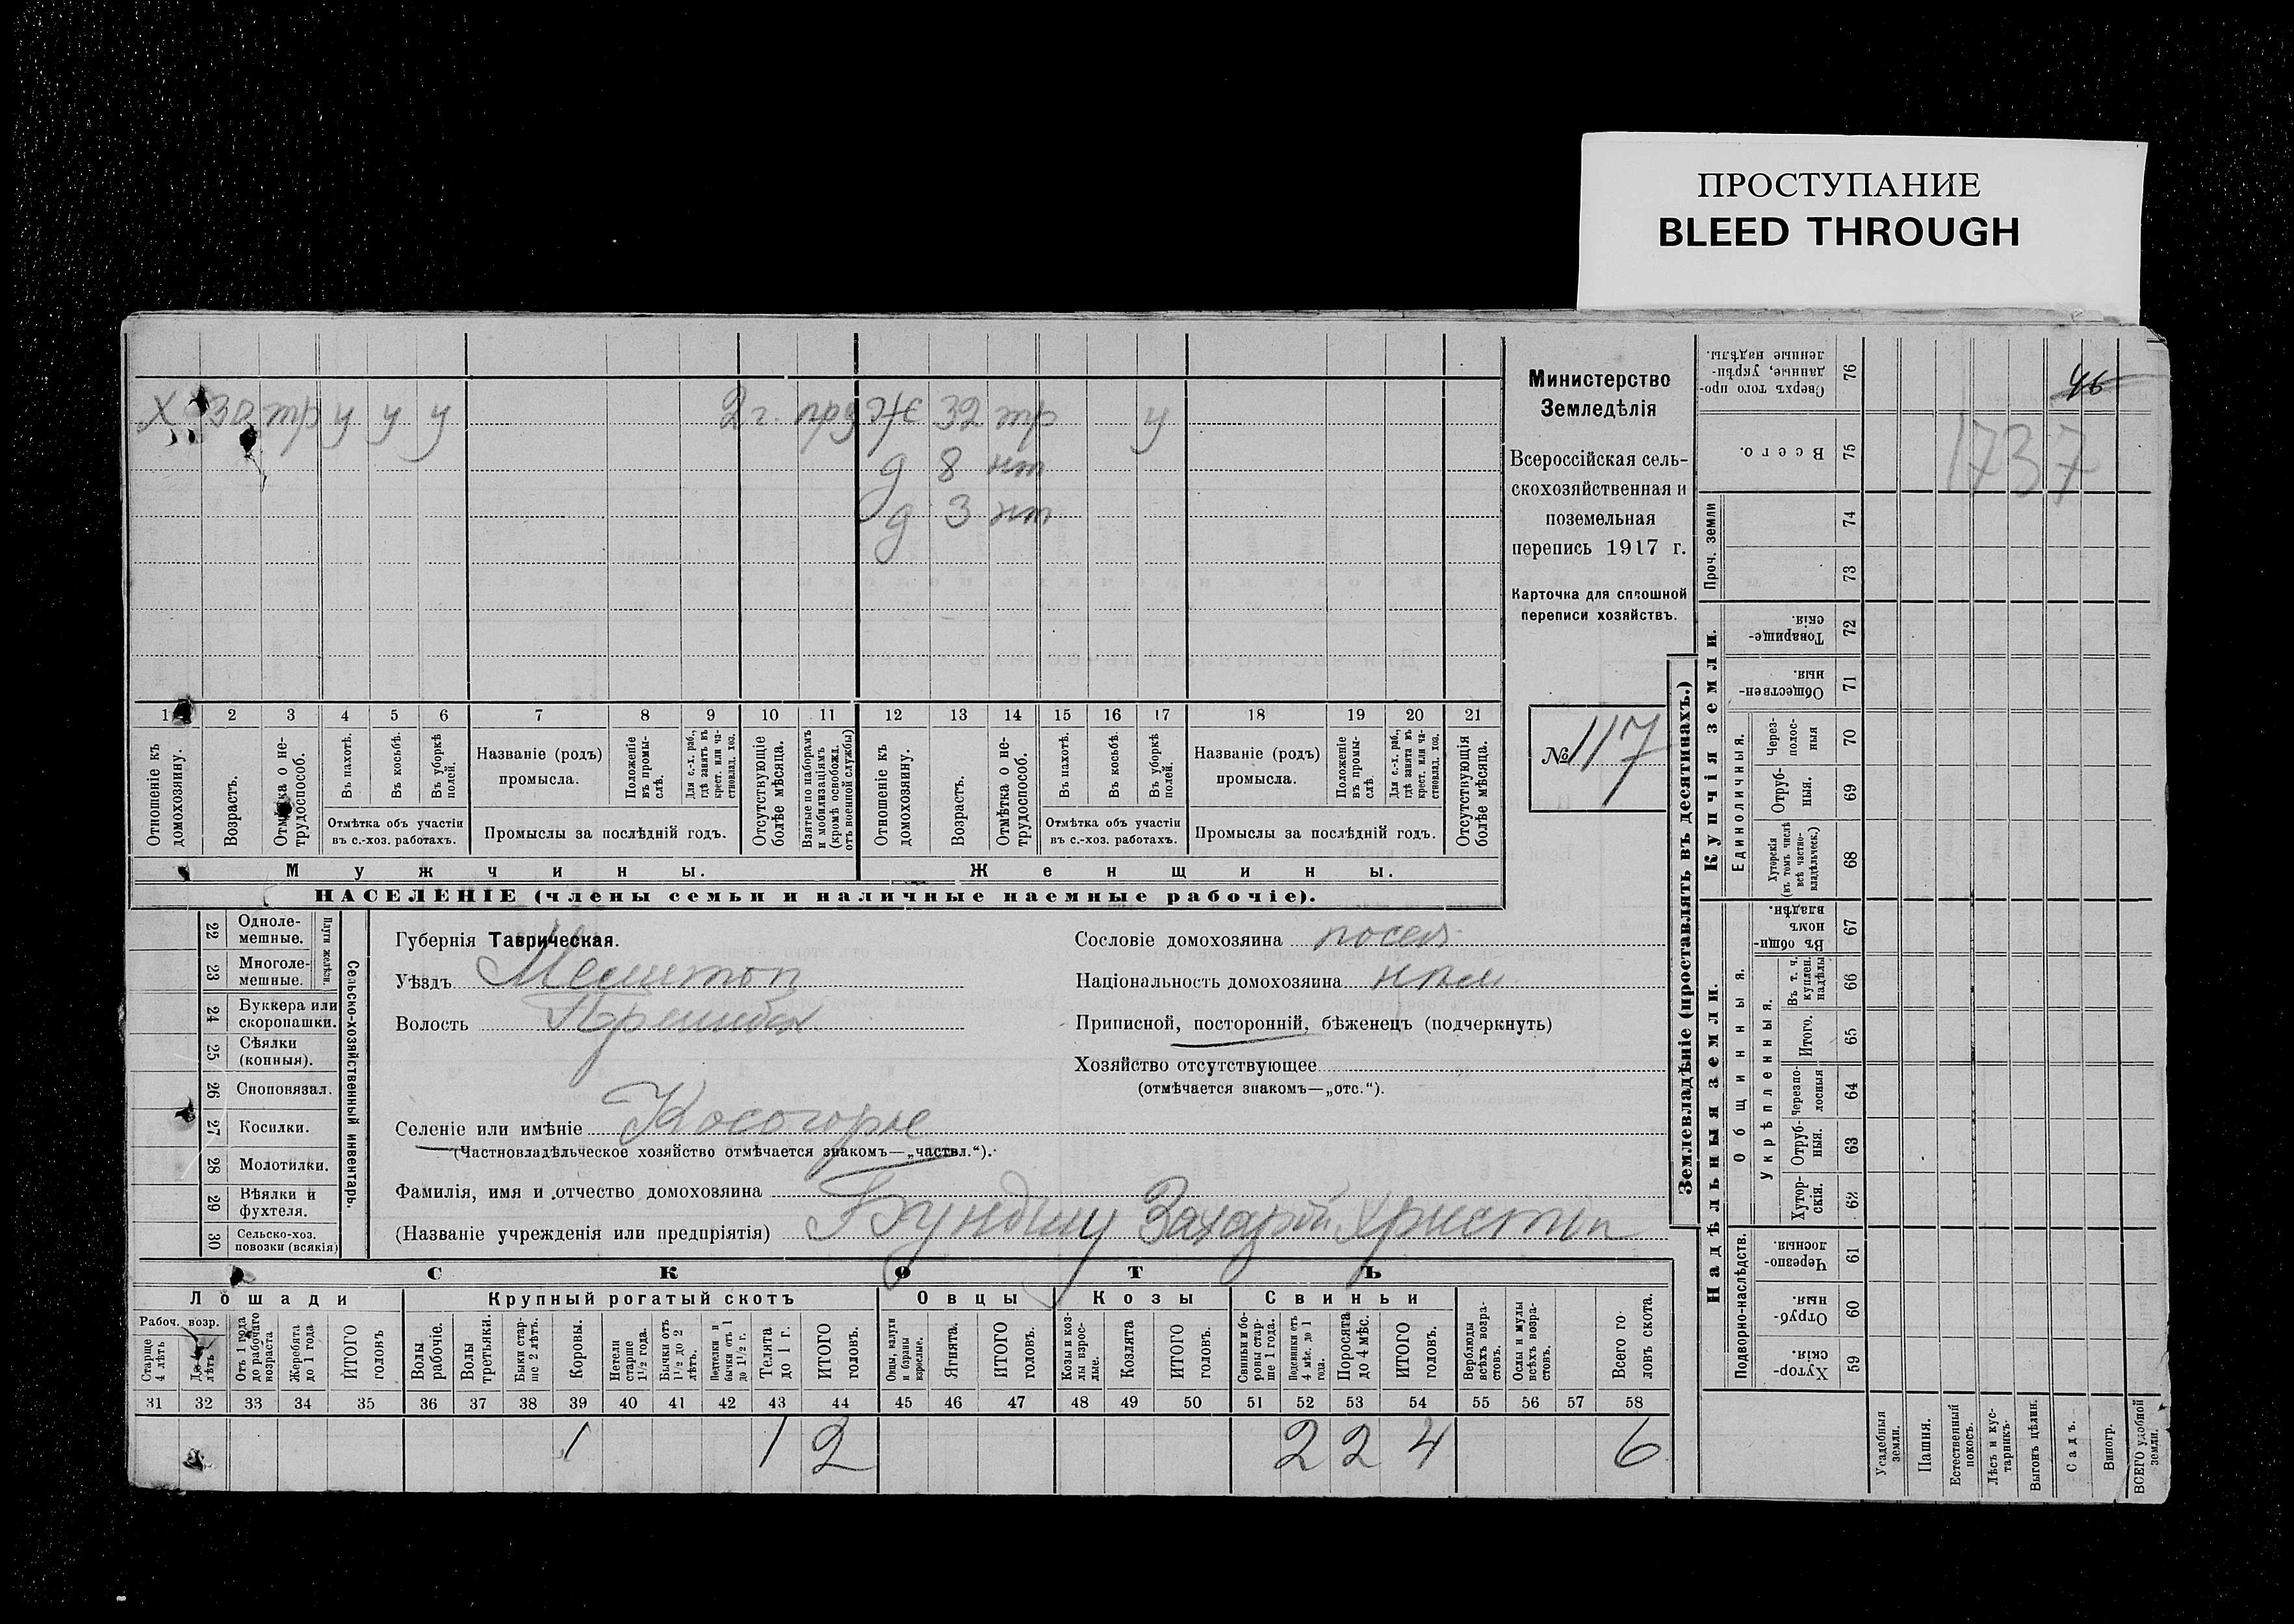 ПРОСТУПАНИЕ
BLEED THROUGH
Х 30 тр у у у 2 г. ж 32 тр у
д 8 нт
д 3 нт
1 2 3 4 5 6 7 8 9 10 11 12 13 14 15 16 17 18 19 20 21
Отношеніе къ домохозяину.
Возрастъ.
Отмѣтка о не-трудоспособ.
Въ пахотѣ.
Въ косьбѣ.
Въ уборкѣ полей.
Отмѣтка объ участіи
въ с.-хоз. работахъ.
Названіе (родъ)
промысла.
Положеніе въ промы-слѣ.
Для с.-х. раб., гдѣ занятъ въ крест. или ча-стновлад. хоз.
Промыслы за послѣдній годъ.
Отсутствующіе болѣе мѣсяца.
Взятые по наборамъ и мобилизаціямъ (кромѣ освобожд. отъ военной службы)
Отношеніе къ домохозяину.
Возрастъ.
Отмѣтка о не-трудоспособ.
Въ пахотѣ.
Въ косьбѣ.
Въ уборкѣ полей.
Отмѣтка объ участіи
въ с.-хоз. работахъ.
Названіе (родъ)
промысла.
Положеніе въ промы-слѣ.
Для с.-х. раб., гдѣ занятъ въ крест. или ча-стновлад. хоз.
Промыслы за послѣдній годъ.
Отсутствующія болѣе мѣсяца.
Мужчины.
Женщины.
НАСЕЛЕНІЕ (члены семьи и наличные наемные рабочіе).
Министерство
Земледѣлія
Всероссійская сель-
скохозяйственная и
поземельная
перепись 1917 г.
Карточка для сплошной
переписи хозяйствъ.
№ 117
22 Одноле-мешные.
23 Многоле-мешные.
Плуги желѣзн.
24 Буккера или скоропашки.
25 Сѣялки (конныя).
26 Сноповязал.
27 Косилки.
28 Молотилки.
29 Вѣялки и фухтеля.
30 Сельско-хоз. повозки (всякія)
Сельско-хозяйственный инвентарь.
Губернія Таврическая.
Уѣздъ Мелитоп
Волость Пришибск
Селеніе или имѣніе Косогорье
(Частновладѣльческое хозяйство отмѣчается знакомъ—„частвл.“).
Фамилія, имя и отчество домохозяина
(Названіе учрежденія или предпріятія) Захарій Христіп
Сословіе домохозяина посел
Національность домохозяина нѣм
Приписной, посторонній, бѣженец (подчеркнуть)
Хозяйство отсутствующее
(отмѣчается знакомъ—„отс.“).
СКОТЪ
Лошади
Крупный рогатый скотъ
Овцы
Козы
Свиньи
Рабоч. возр.
Старше 4 лѣтъ
До 4 лѣтъ
Отъ 1 года до рабочаго возраста
Жеребята до 1 года
ИТОГО головъ
Волы рабочіе.
Волы третьяки.
Быки стар-ше 2 лѣтъ.
Коровы.
Нетели старше 1½ года.
Бычки отъ 1½ до 2 лѣтъ.
Телята до 1 г.
ИТОГО головъ.
Овцы, валухи и бараны взрослые.
Ягнята.
ИТОГО головъ.
Козы и коз-лы взрос-лые.
Козлята
ИТОГО головъ.
Свиньи и бо-ровы стар-ше 1 года.
Подсвинки отъ 4 мѣс. до 1 года.
Поросята до 4 мѣс.
ИТОГО головъ.
Верблюды всѣхъ возра-стовъ.
Ослы и мулы всѣхъ возра-стовъ.
Всего го-ловъ скота.
31 32 33 34 35 36 37 38 39 40 41 42 43 44 45 46 47 48 49 50 51 52 53 54 55 56 57 58
1 1 2 2 2 4 6
Землевладѣніе (проставлять въ десятинахъ.)
Купчія земли.
Надѣльныя земли.
Сверхъ того про-данные, укрѣп-ленные надѣлы. 76
Всего. 75
Проч. земли
74
73
Товарище-скія. 72
Обществен-ныя. 71
Единоличныя.
Через-полос-ныя 70
Отруб-ныя. 69
Хуторскія (въ томъ числѣ всѣ частно-владѣльческ.) 68
Общинныя.
Въ общин-номъ владѣн. 67
Укрѣпленныя.
Въ т. ч. куплен. надѣлы 66
Итого. 65
Черезпо-лосныя 64
Отруб-ныя. 63
Хутор-скія. 62
Подворно-наслѣдств.
Черезпо-лосныя. 61
Отруб-ныя. 60
Хутор-скія. 59
Усадебныя земли.
Пашня.
Естественный покосъ.
Лѣсъ и кус-тарникъ.
Выгонъ цѣлин.
Садъ.
Виногр.
ВСЕГО удобной земли.
46
1737